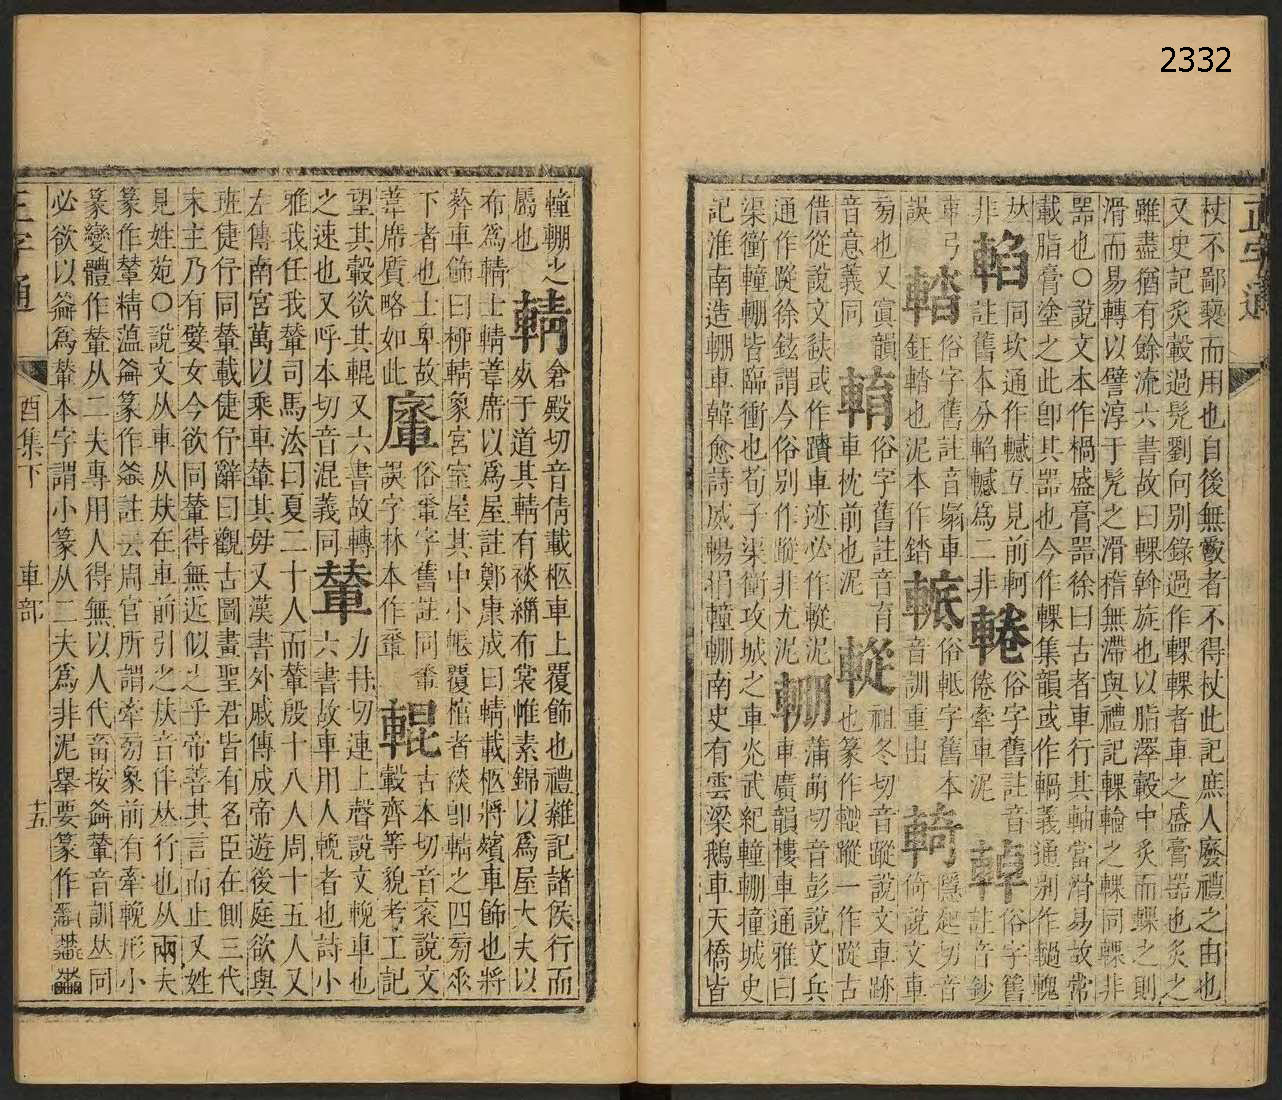 2332
正字通
杖不鄙褻而用也自後無敢者不得杖此記庶人廢禮之由也
又史記炙轂過髡劉向別錄過作輠輠者車之盛膏器也炙之
雖盡猶有餘流六書故曰輠斡旋也以脂澤轂中炙而輠之則
滑而易轉以譬淳于髡之滑稽無滯與禮記輠輪之輠同輠非
器也〇說文本作楇盛膏器徐曰古者車行其軸當滑易故常
載脂膏塗之此卽其器也今作輠集韻或作輵義通別作
輡同坎通作轗互見前軻
非註舊本分輡轗爲二非
輇俗字舊註音
倦牽車泥
俗字舊
註音鈔
車弓
誤
輴俗字舊註音
車釭輴也泥本作錔
軧俗軧字舊本
音訓重出
輢隱起切音
倚說文車
旁也又寘韻
音意義同
輎俗字舊註音育
車枕前也泥
䡮祖冬切音蹤說文車跡
也篆作䡮蹤一作踨古
借從說文䟫或作蹟車迹必作䡮泥
通作踨徐鉉謂今俗別作蹤非尤泥
輣蒲萌切音彭說文兵
車廣韻樓車通雅曰
渠衝幢輣皆臨衝也荀子渠衝攻城之車光武紀幢輣撞城史
記淮南造輣車韓愈詩威暢捐幢輣南史有雲梁鵝車天橋皆
幢輣之
屬也
輤倉殿切音倩載柩車上覆飾也禮雜記諸侯行而
死于道其輤有裧緇布裳帷素錦以爲屋大夫以
布爲輤士輤葦席以爲屋註鄭康成曰輤載柩將殯車飾也將
葬車飾曰柳輤象宮室屋其中小帳覆棺者裧卽輤之四旁垂
下者也士卑故
葦席質略如此
俗字舊註同
誤字林本作
輥古本切音衮說文
轂齊等貌考工記
望其轂欲其輥又六書故轉
之速也又呼本切音混義同
輦力幷切連上聲說文輓車也
六書故車用人輓者也詩小
雅我任我輦司馬法曰夏二十人而輦殷十八人周十五人又
左傳南宮萬以乘車輦其母又漢書外戚傳成帝遊後庭欲與
班倢伃同輦載倢伃辭曰觀古圖畫聖君皆有名臣在側三代
末主乃有嬖女今欲同輦得無近似之乎帝善其言而止又姓
見姓苑〇說文从車从㚘在車前引之㚘音伴从行也从兩夫
篆作輦精薀篆作註云周官所謂牽旁象前有牽輓形小
篆變體作輦从二夫專用人得無以人代畜按輦音訓从同
必欲以爲輦本字謂小篆从二夫爲非泥舉要篆作
正字通
酉集下
車部
十五